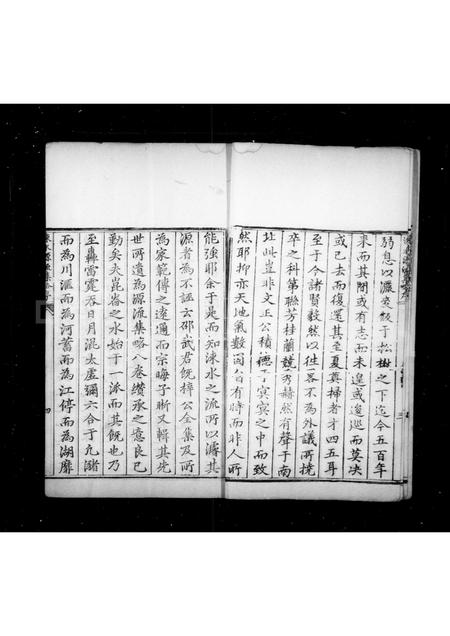 弱息以瀝奠餟于松楸之下迄今五百年
來而其間或有志而未遑或逡巡而莫决
或已去而復還其至夏奠掃者才四五耳
至于今諸賢毅然以往畧不為外議所撓
卒之科第聯芳桂蘭競秀赫然有聲于南
北此豈非文正公積德于冥冥之中而致
然耶抑亦天地氣數固自有時而非人所
能強耶余于是而知涑水之流所以濬其
源者為不誣云邵武君既梓公全集及所
為家範傳之遠通而宗晦子晰又輯其先
世所遺為源流集略八卷纘承之意良已
勤矣夫崑崙之水始于一派而其既也乃
至轟雷霆吞日月混太虛彌六合于九瀦
而為川滙而為河蓄而為江停而為湖靡
四